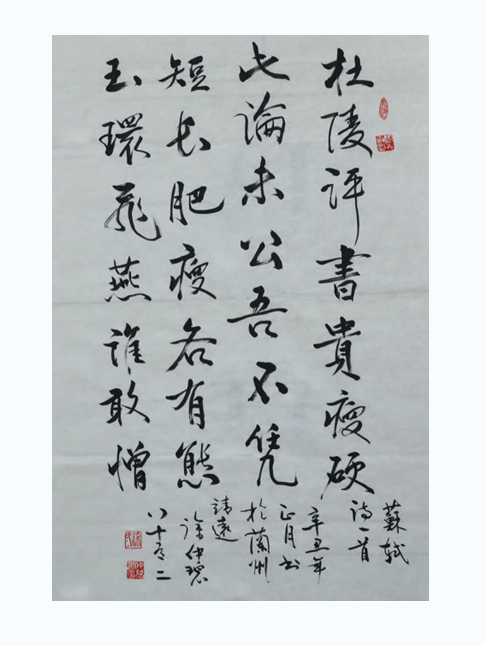 杜陵評書貴瘦硬
此論未公吾不凭
短长肥瘦各有態
玉環飛燕誰敢憎
蘇軾
诗一首
辛丑年
正月书
於蘭州
靖遠
徐仲
八十有二